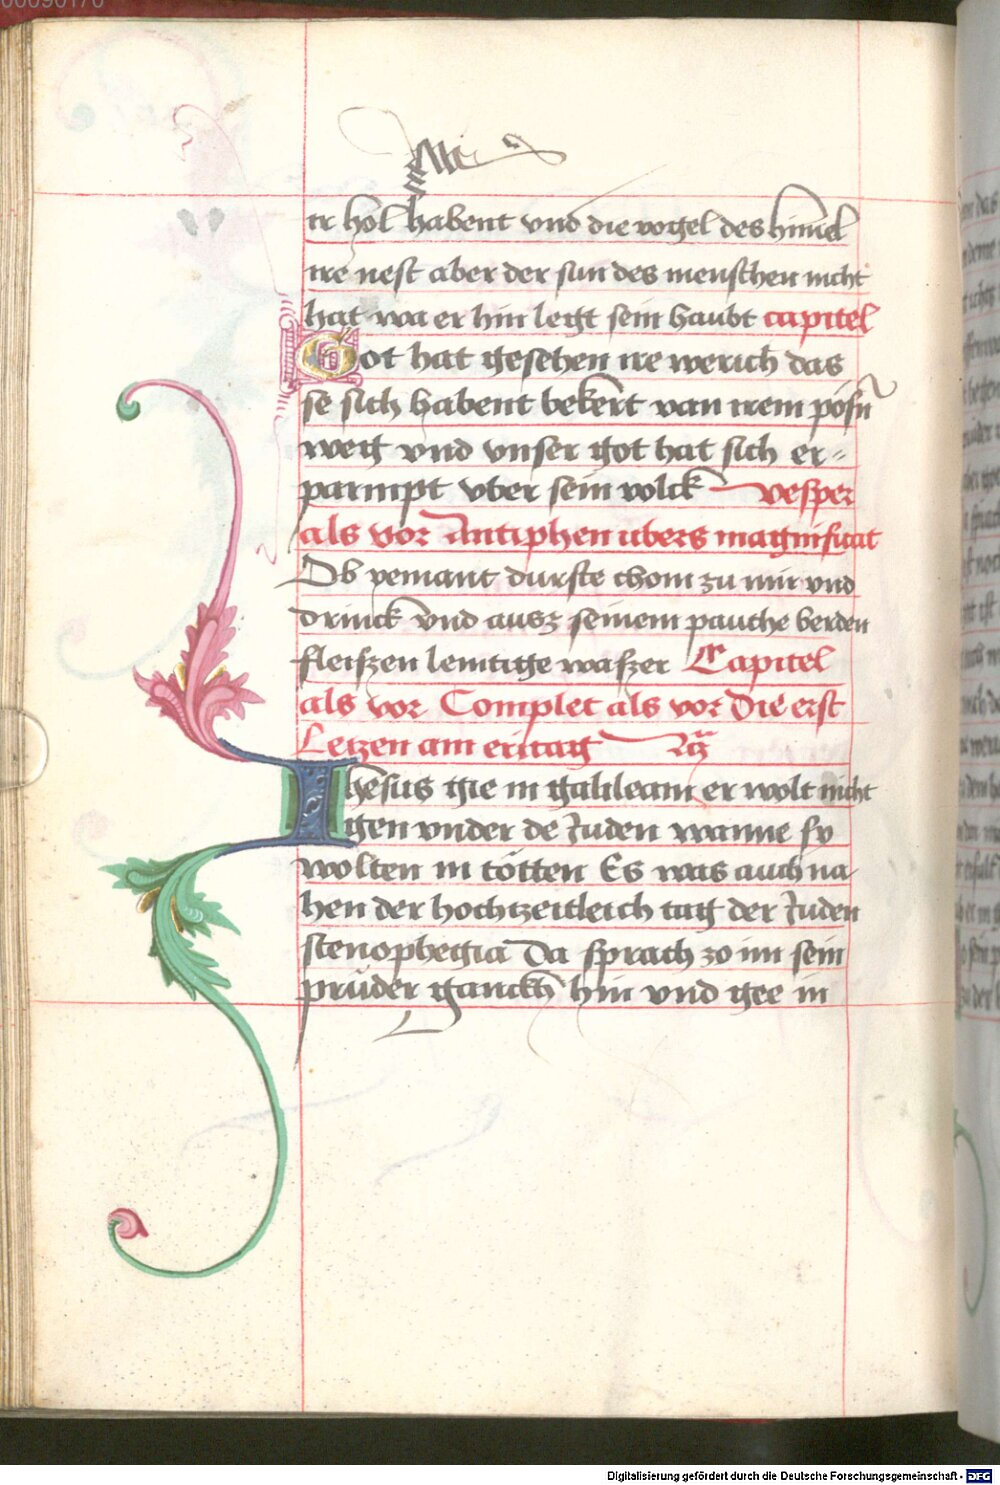 ir hol habent vnd die vogel des himel
ire nest aber der sun des menschen nicht
hat wa er hin legt sein haubt capitel
Got hat gesehen ire werich das
se sich habent bekert van irem posn
weg vnd vnser got hat sich er-
parmpt vber sein volck vesper
als vor Antiphen vbers magnificat
Ob yemant durste chom zu mir vnd
drinck vnd ausz seinem pauche werden
fleiszen lemtige waszer Capitel
als vor Complet als vor Die erst
Letzen am eritag
Ihesus gie in galileam er wolt nicht
gen vnder de Juden wanne sy
wolten in tötten Es was auch na
hen der hochtzeitleich tag der Juden
stenophegia Da sprach zo im sein
prüder ganckh hin vnd gee in
Digitalisierung gefördert durch die Deutsche Forschungsgemeinschaft - DFG